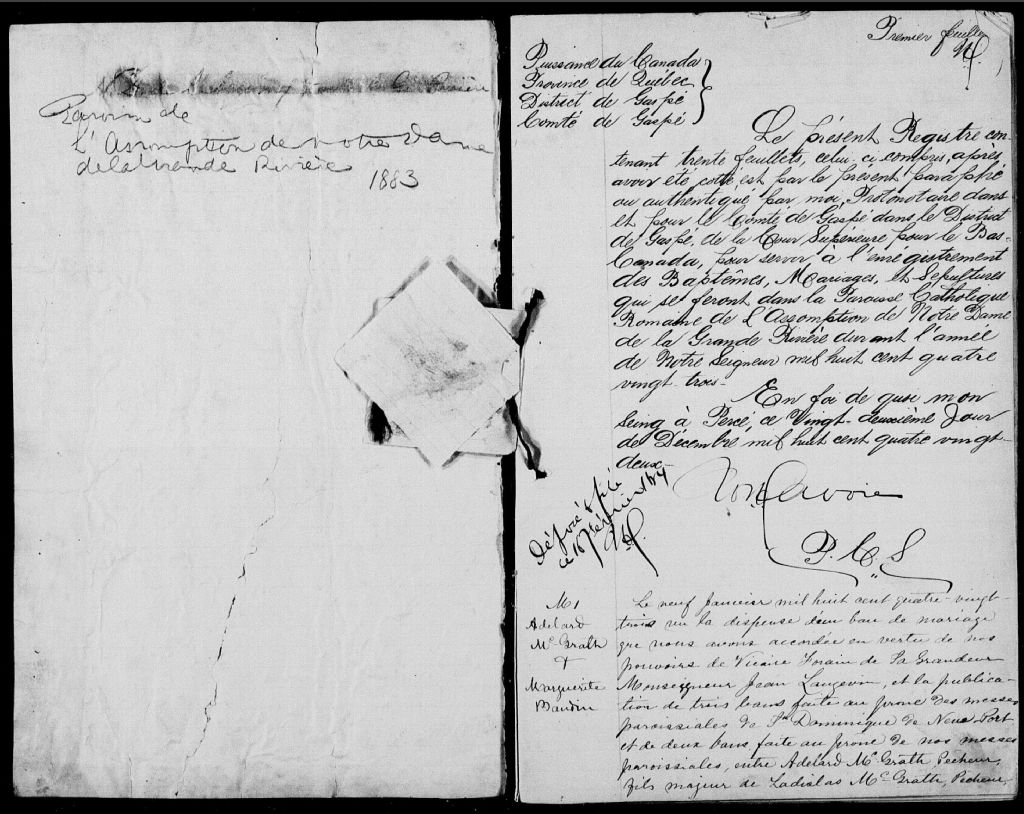 Paroisse de
l'Assomption de Notre Dame
de la Grande Rivière
1883
Premier feuillet
Puissance du Canada
Province de Québec
District de Gaspé
Comté de Gaspé
Le présent Registre con-
tenant trente feuillets, celui-ci compris, après
avoir été coté, est par le présent paraphé
ou authentiqué par moi, Protonotaire dans
et pour le Comté de Gaspé dans le District
de Gaspé, de la Cour Supérieure pour le Bas-
Canada, pour servir à l'enregistrement
des Baptêmes, Mariages, et Sépultures
qui se feront dans la Paroisse Catholique
Romaine de l'Assomption de Notre Dame
de la Grande Rivière durant l'année
de Notre Seigneur mil huit cent quatre
vingt-trois-
En foi de quoi mon
seing à Percé, ce Vingt-deuxième Jour
de Décembre mil huit cent quatre vingt-
deux-
Savoie
P.C.S
Déposé & filé
ce 16 février 1884
M1
Adelard
McGrath
+
Marguerite
Baudin
Le neuf Janvier mil huit cent quatre-vingt-
trois vu la dispense d'un ban de mariage
que nous avons accordée en vertu de nos
pouvoirs de Vicaire Forain de Sa Grandeur
Monseigneur Jean Langevin, et la publica-
tion de trois bans faite au prone des messes
paroissiales de St Dominique de New-Port
et de deux bans faite au prone de nos messes
paroissiales, entre Adelard McGrath Pecheur,
fils majeur de Ladislas McGrath, Pecheur,